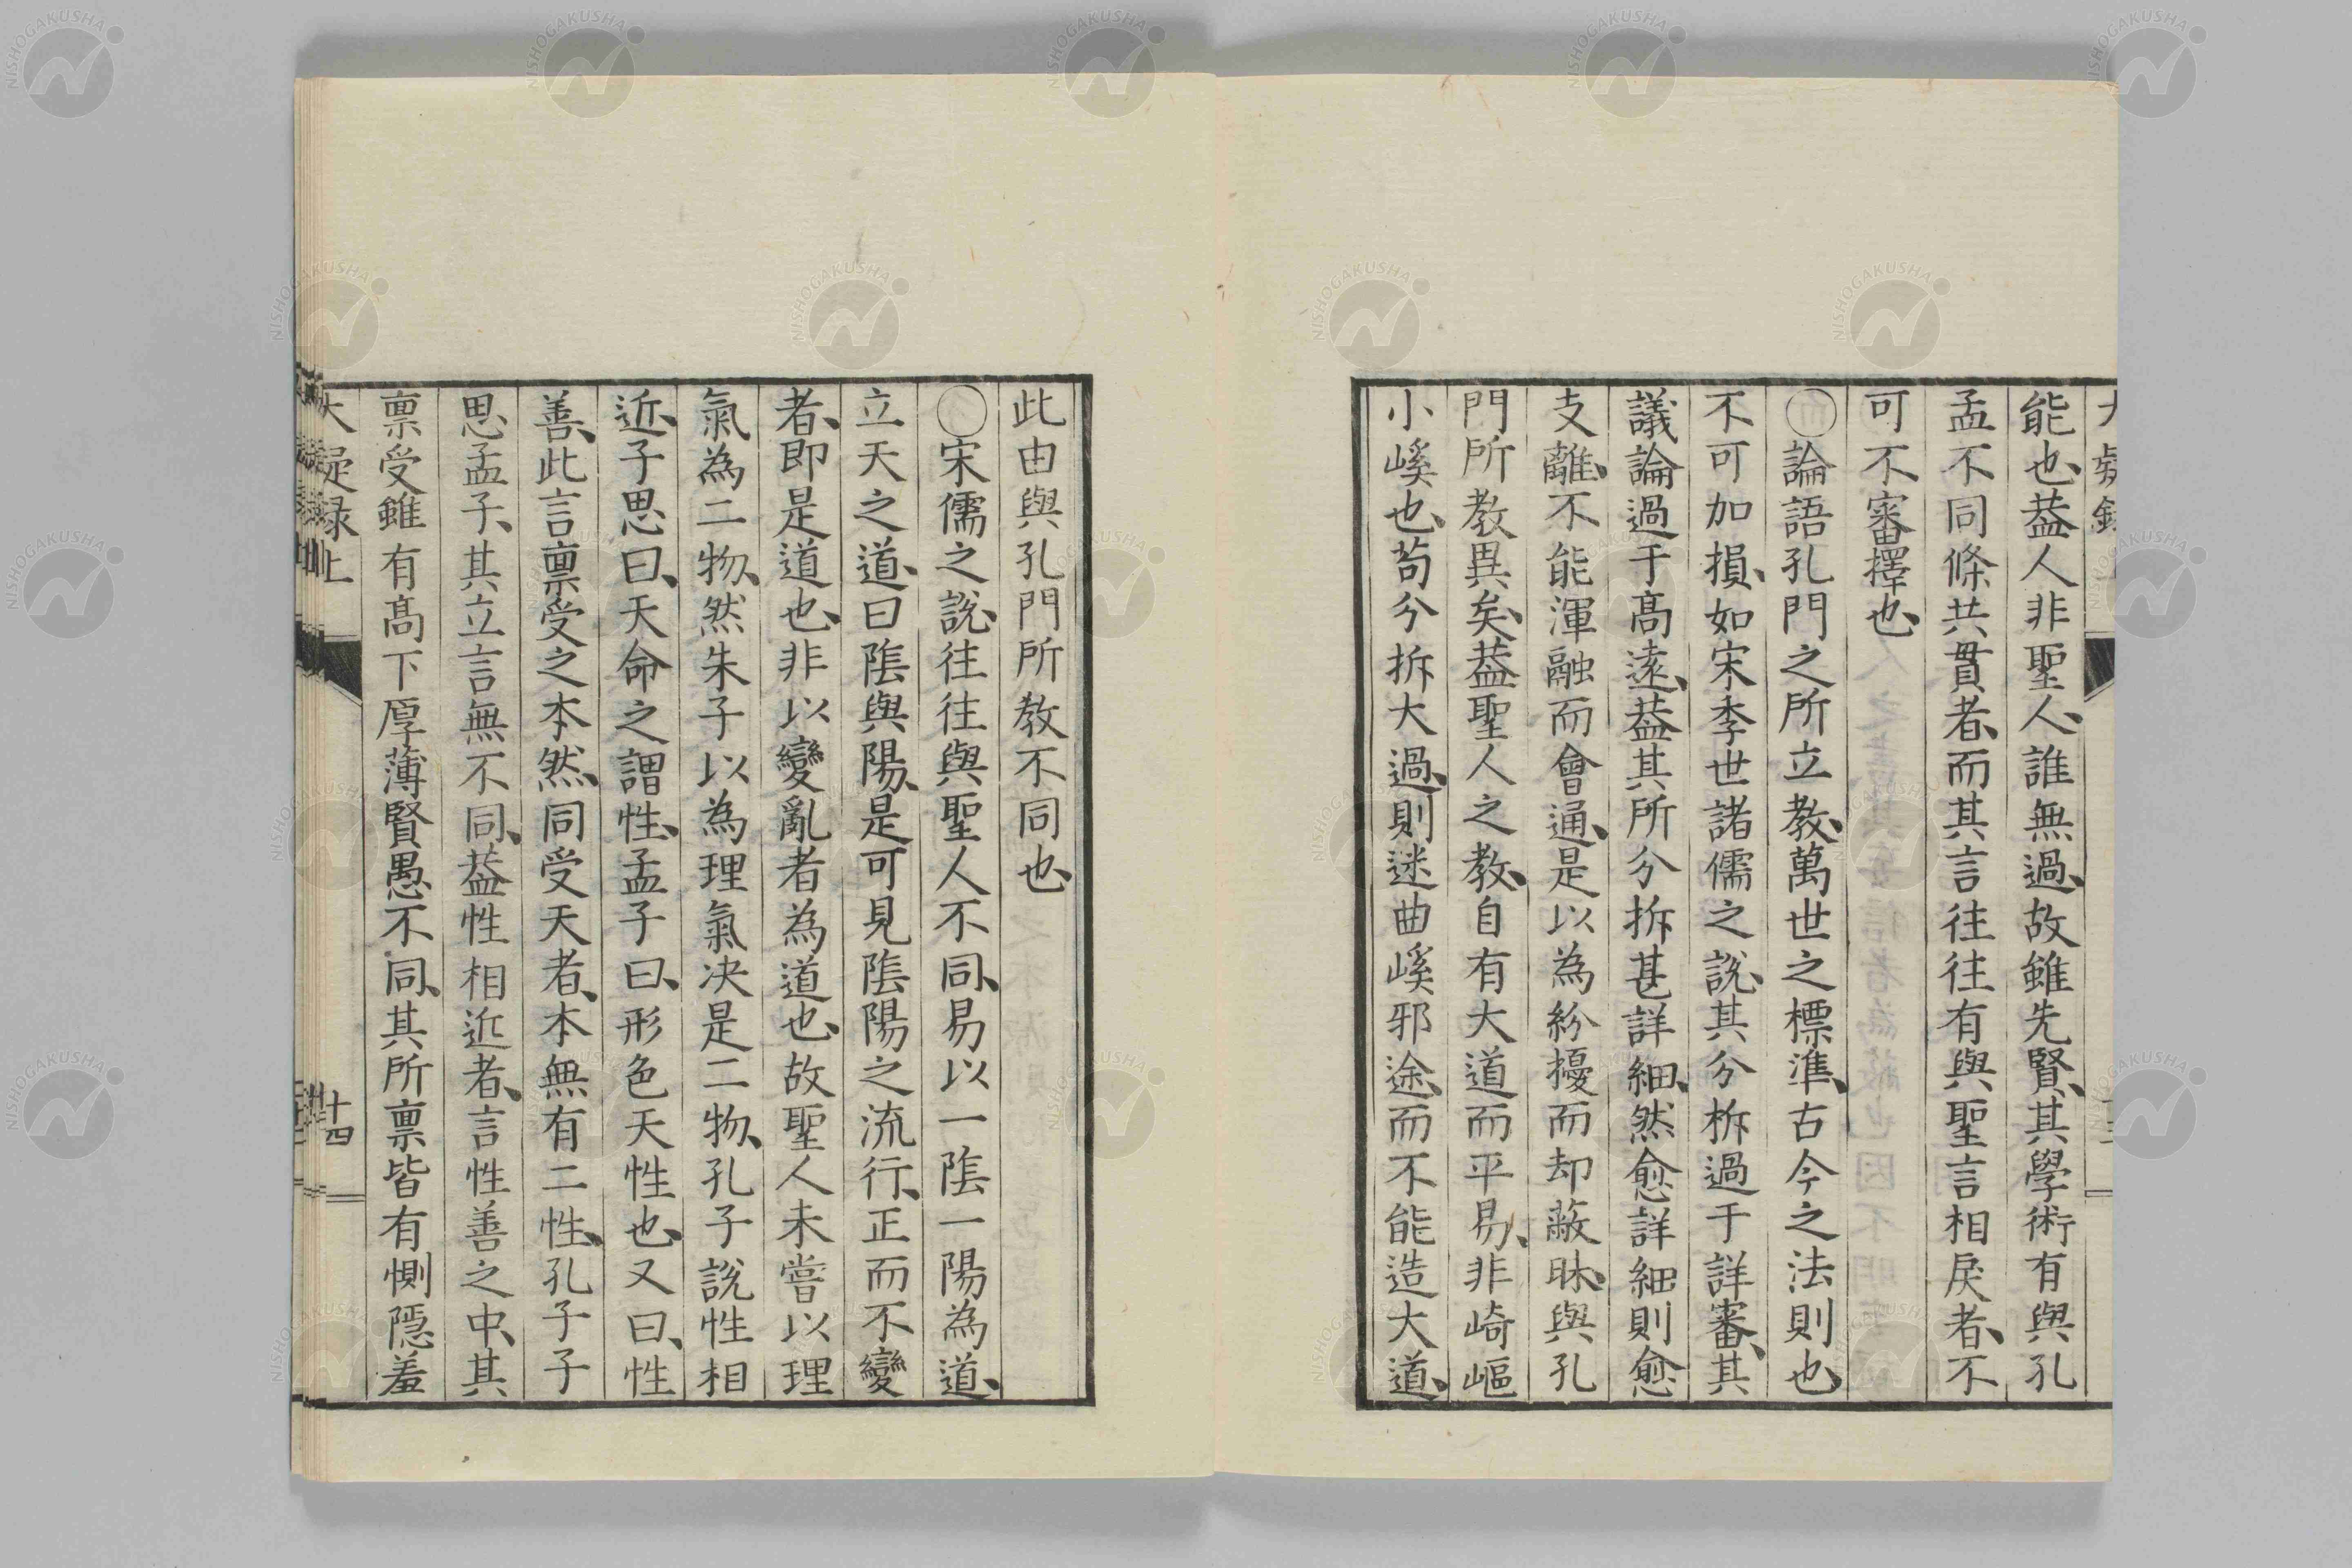 能也、葢人非聖人、誰無過、故雖先賢、其學術有與孔
孟不同條共貫者、而其言往往有與聖言相戾者、不
可不審擇也、
〇論語孔門之所立教、萬世之標準、古今之法則也、
不可加損、如宋季世諸儒之說、其分柝過于詳審、其
議論過于髙遠、葢其所分拆甚詳細、然愈詳細則愈
支離、不能渾融而會通、是以為紛擾而却蔽昧、與孔
門所教異矣、葢聖人之教、自有大道而平易、非崎嶇
小嵠也、苟分拆大過、則迷曲嵠邪途、而不能造大道、
此由與孔門所教不同也、
〇宋儒之說、往往與聖人不同、易以一陰一陽為道、
立天之道、曰陰與陽、是可見陰陽之流行、正而不變
者、即是道也、非以變亂者為道也、故聖人未嘗以理
氣為二物、然朱子以為理氣决是二物、孔子說性相
近、子思曰、天命之謂性、孟子曰、形色天性也、又曰、性
善、此言禀受之本然、同受天者、本無有二性、孔子子
思孟子、其立言無不同、葢性相近者、言性善之中、其
禀受雖有髙下厚薄賢愚不同、其所禀皆有惻隱羞
大疑録上
十四
NISHOGAKUSHA